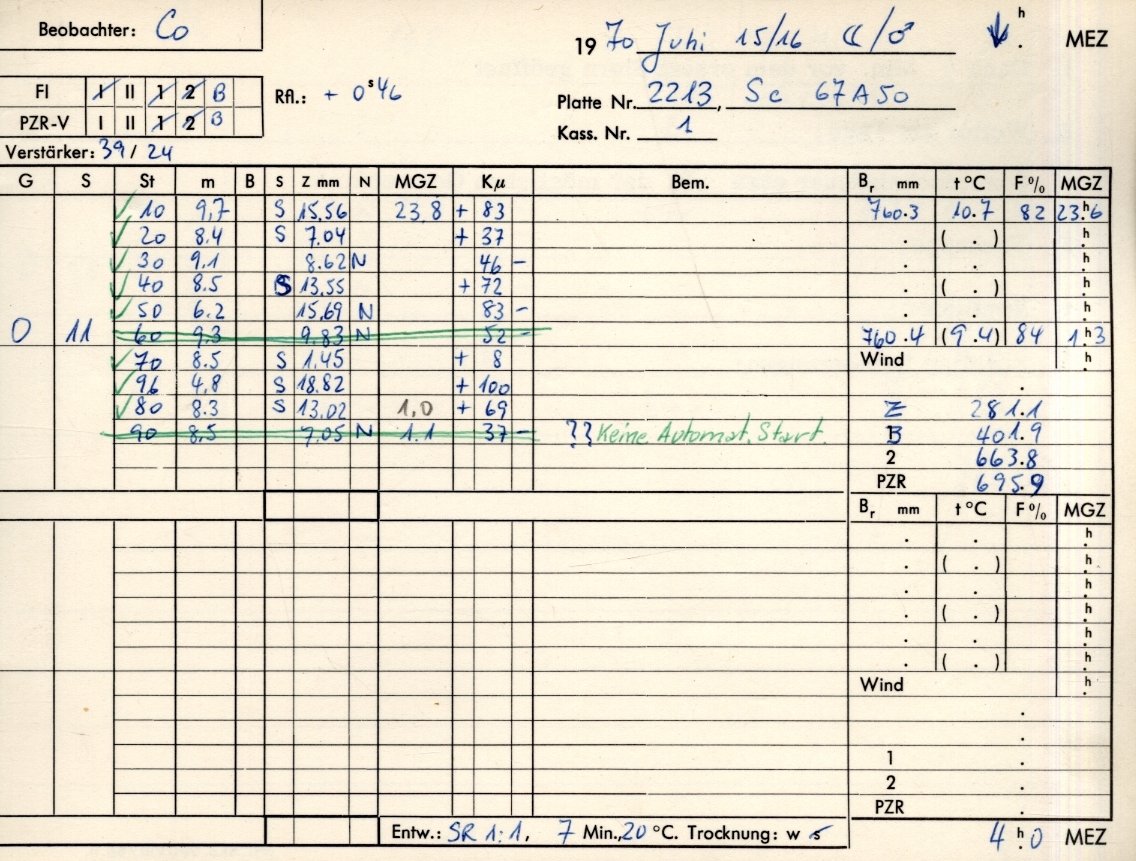 Beobachter: Co
19 70 Juhi 15/16 ☾/♂ ↓ h . MEZ
FI I II 1 2 B Rfl.: + 0ˢ46
Platte Nr. 2213, Sc 67A50
PZR-V I II 1 2 B
Kass. Nr. 1
Verstärker: 39 / 24
G S St m B S Z mm N MGZ Kµ Bem. Bᵣ mm t °C F % MGZ
✓ 10 9,7 S 15.56 23,8 + 83 760.3 10.7 82 23.ʰ6
✓ 20 8.4 S 7.04 + 37 . ( . ) .ʰ
✓ 30 9.1 8.62 N 46 - . . .ʰ
✓ 40 8.5 S 13.55 + 72 . ( . ) .ʰ
✓ 50 6.2 15.69 N 83 - . . .ʰ
0 11 60 9.3 9.83 N 52 - 760.4 (9.4) 84 1.ʰ3
✓ 70 8.5 S 1.45 + 8 Wind .ʰ
✓ 96 4,8 S 18.82 + 100 .
✓ 80 8.3 S 13.02 1,0 + 69 Z 281.1
90 8,5 7.05 N 1.1 37 - ?? Keine Automat. Start. B 401.9
2 663.8
PZR 695.9
Bᵣ mm t °C F % MGZ
. . .ʰ
. ( . ) .ʰ
. . .ʰ
. ( . ) .ʰ
. . .ʰ
. ( . ) .ʰ
Wind .ʰ
.
.
1 .
2 .
PZR .
Entw.: SR 1:1, 7 Min., 20 °C. Trocknung: w s 4.ʰ0 MEZ